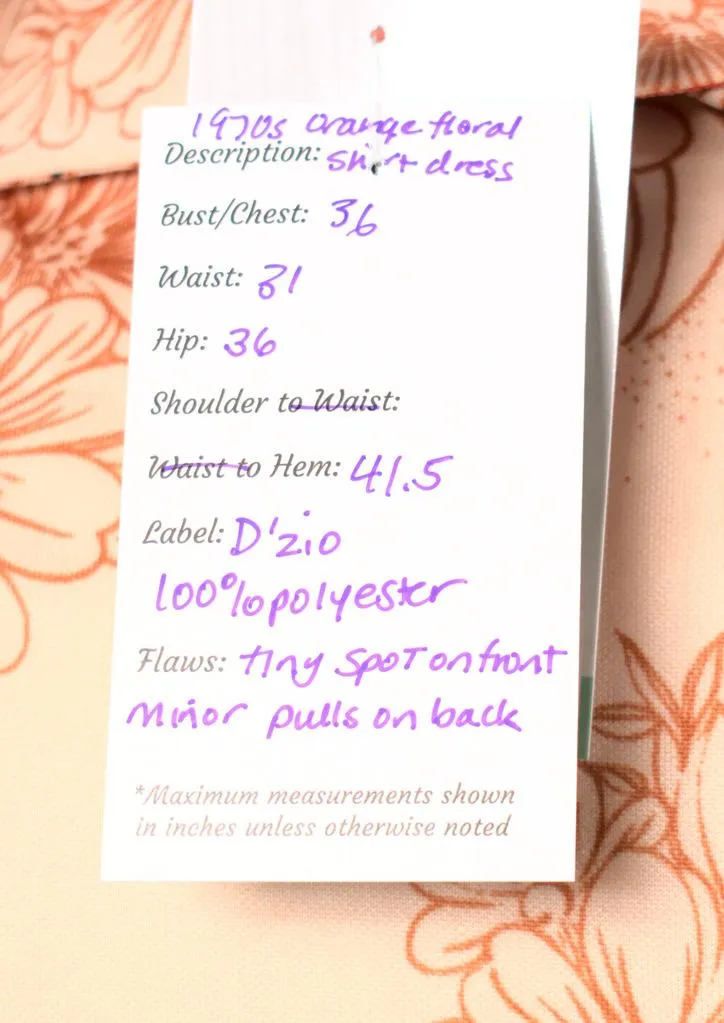 1970s orange floral
Description: shirt dress
Bust/Chest: 36
Waist: 31
Hip: 36
Shoulder to Waist:
Waist to Hem: 41.5
Label: D'zio
100% polyester
Flaws: tiny spot on front
Minor pulls on back
*Maximum measurements shown
in inches unless otherwise noted